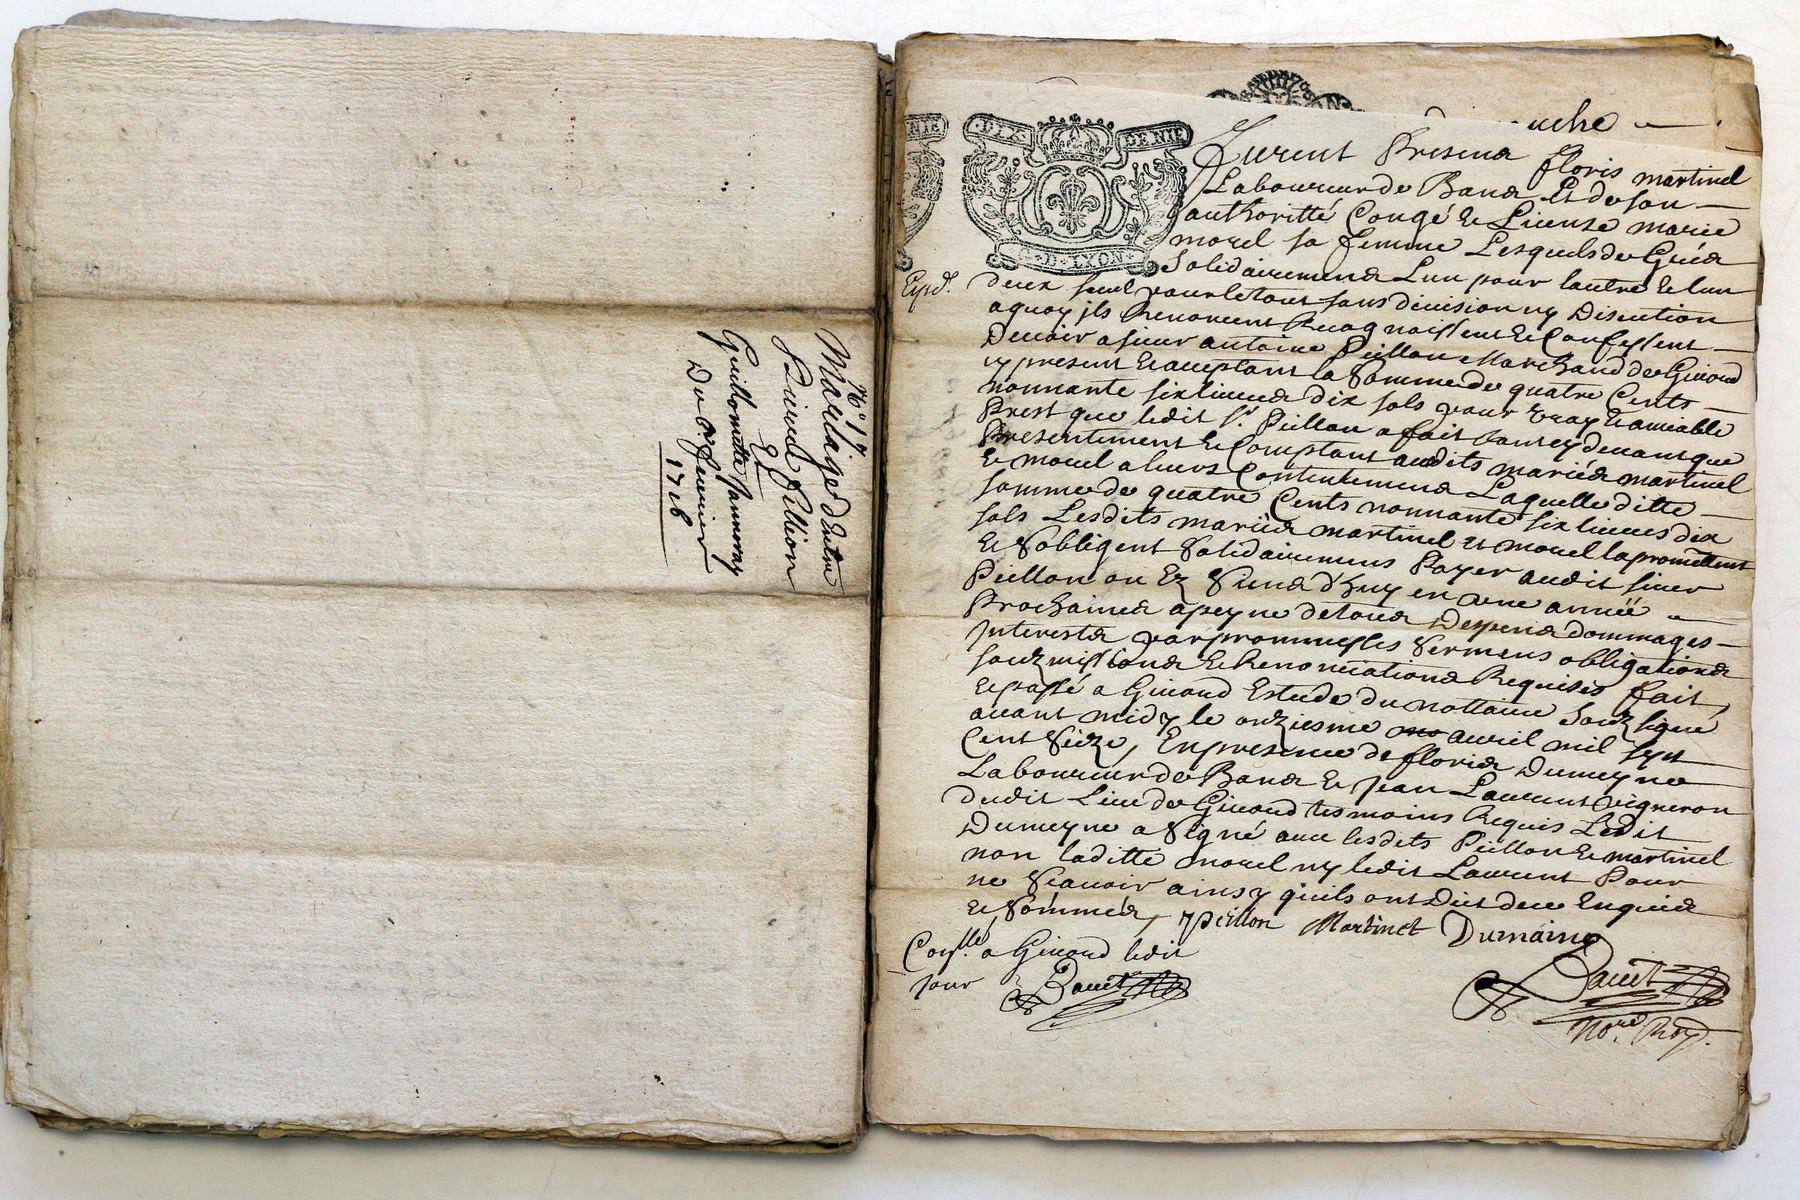 N° 17
Mariage d'entre
Pierre fillion
Et
Guillomette
Du 6 feurier
1716
uche
DIX DENIE
G. D. LYON
NIE
Expd.
furent Presens floris martinel
Laboureur de Bans Et de son
authoritté Congé & License marie
morel sa femme Lesquels de Gréé
Solidairement L'un pour lautre & lun
deux seul pour le tout sans diuision ny Discution
a quoy ils Renoncent Recognoissent & Confessent
Deuoir a sieur antoine Peillon Marchand de Giuord
cy present & acceptant la Somme de quatre Cents
nonnante six liures dix sols pour vray & amiable
Prest que ledit sr. Peillon a fait tant cy deuant que
Presentement & Comptant ausdits mariés martinel
& morel a leurs Contentement Laquelle ditte
somme de quatre Cents nonnante six liures dix
sols Lesdits mariés martinel et morel la promettent
& s'obligent Solidairement Payer audit sieur
Peillon ou Ez Siens d'huy en une année
Prochaines a peyne de tous Despens dommages
Interests par promesses Sermens obligations
souzmissions & Renonciations Requises fait
& passé a Giuord Estude du nottaire Souz signé
auant midy le onziesme auril mil sept
Cent Seize, En presence de floris Dumeyne
Laboureur de Bans & Jean Laurent vigneron
dudit Lieu de Giuord tesmoins Requis Ledit
Dumeyne a Signé auec lesdits Peillon & martinel
non laditte morel ny ledit Laurent Pour
ne Scauoir ainsy qu'ils ont Dit de ce Enquis
& Sommés, Peillon Martinet Dumaine
a Giuord ledit
jour
Nore. Roy.